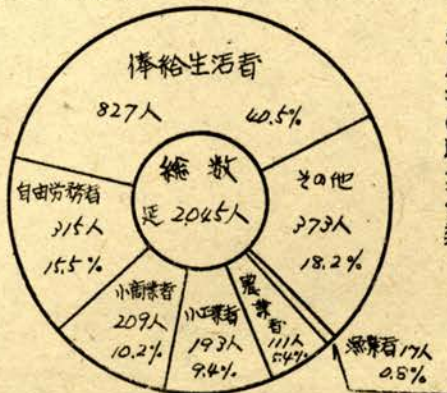 俸給生活者
827人 40.5%
総数
延2,045人
その他
373人
18.2%
自由労務者
315人
15.5%
小商業者
209人
10.2%
小工業者
193人
9.4%
農業者
111人
5.4%
漁業者17人
0.8%